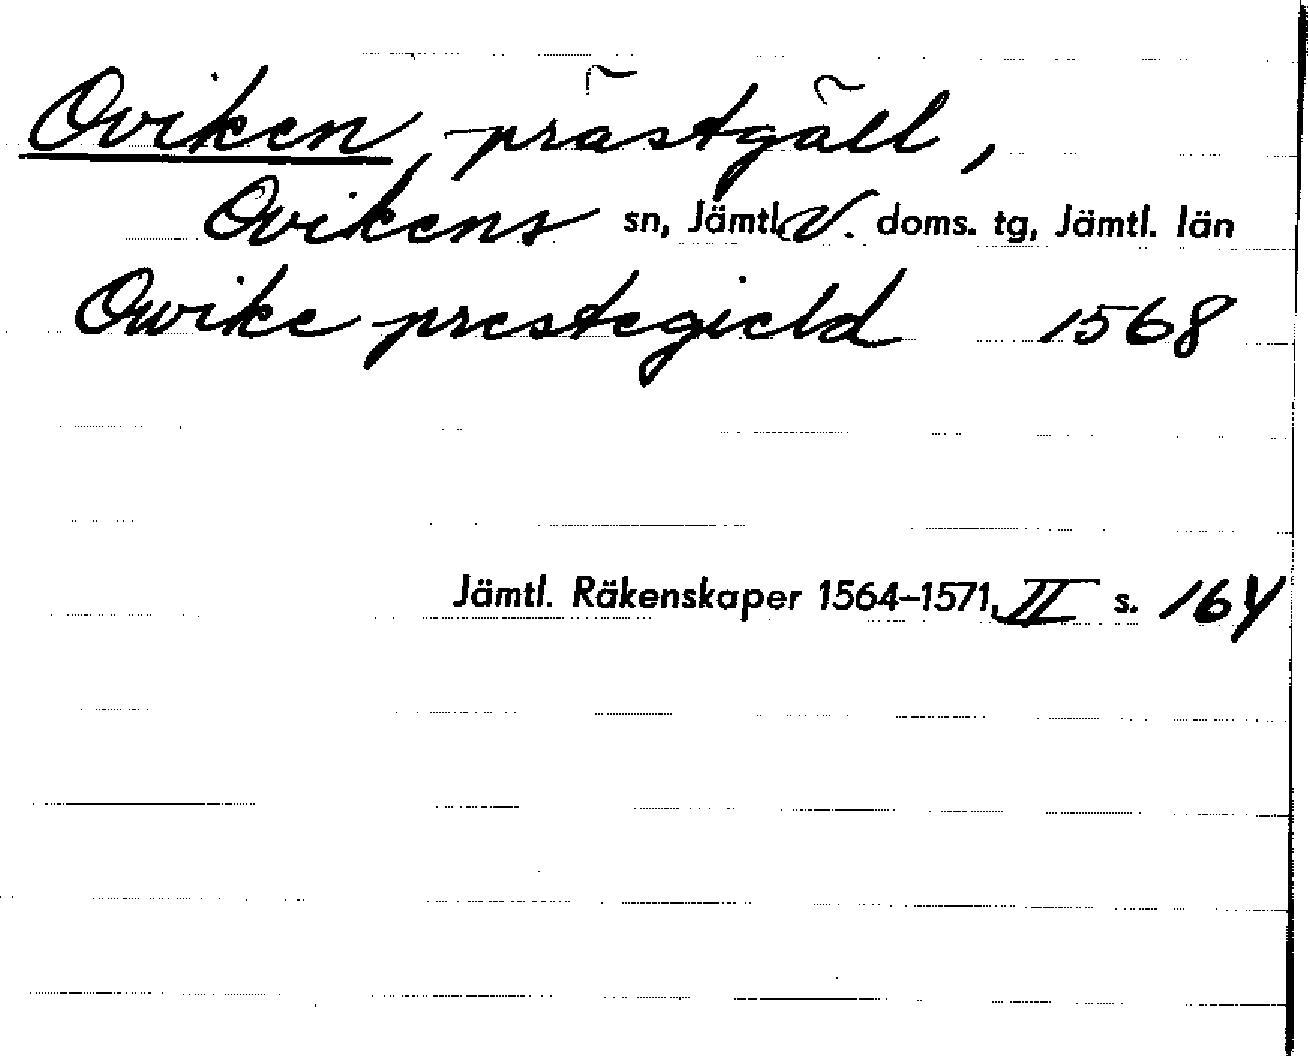 Oviken, prästgäll,
Ovikens sn, Jämtl. V. doms. tg, Jämtl. län
Owike prestegield 1568
Jämtl. Räkenskaper 1564–1571, II s. 164